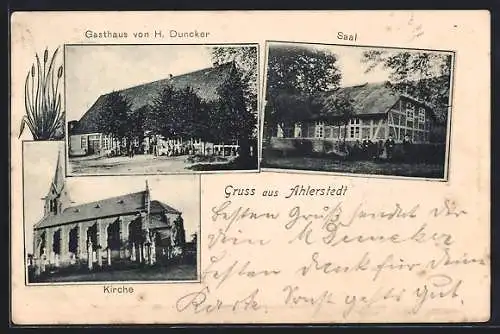 Gasthaus von H. Duncker
Saal
Gruss aus Ahlerstedt
Kirche
Besten Gruß sendet Dir
dein
besten Dank für deine
Karte. Sonst gehts gut.